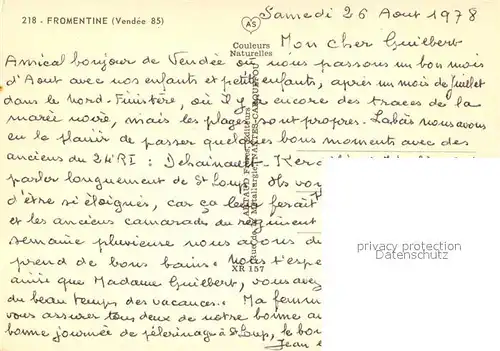 218 - FROMENTINE (Vendée 85)
Samedi 26 Aout 1978
AS
Couleurs
Naturelles
Mon cher Guilbert
Amical bonjour de Vendée où nous passons un bon mois
d'Aout avec nos enfants et petits enfants, après un mois de Juillet
dans le nord-Finistère, où il y a encore des traces de la
marée noire, mais les plages sont propres. Labas nous avons
eu le plaisir de passer quelques bons moments avec des
anciens du 24e RI :
parler longuement de St Loup. Ils
d'être si éloignés, car ça leur ferait
et les anciens camarades du régiment
semaine pluvieuse nous avons
prend de bons bains. Nous t'esp
que Madame Guilbert, vous avez
du beau temps des vacances. Ma femm
vous assurer tous deux de notre bonne
bonne journée de pèlerinage à St Loup, le bo
Jean
ARTAUD Frères, Editeurs
Rue de la Métallurgie, NANTES-CARQUEFOU
XR 157
privacy protection
Datenschutz